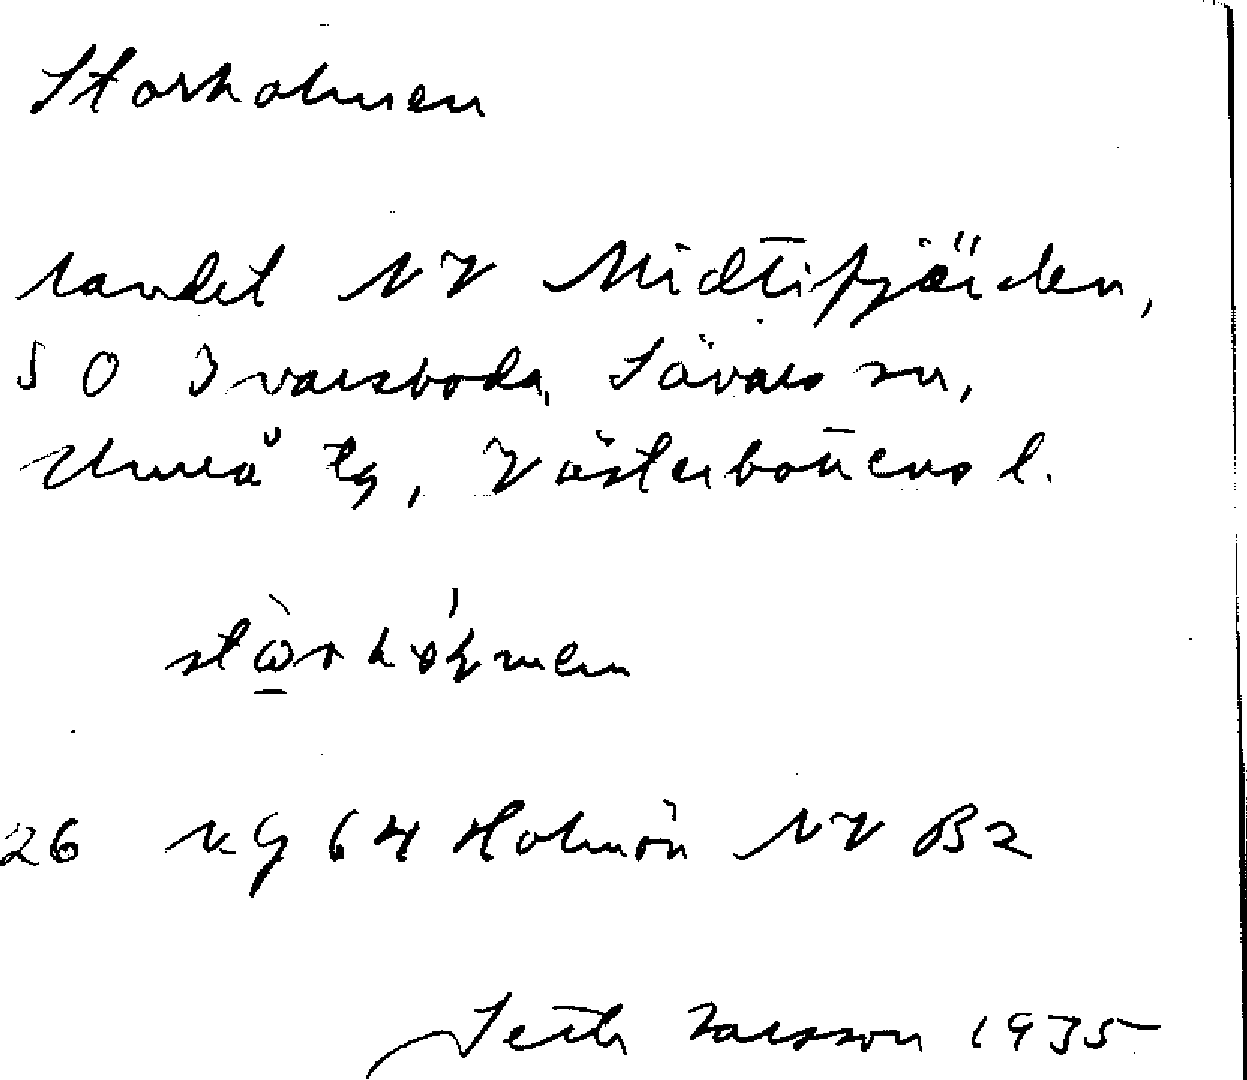 Storholmen
landet NV Midtifjärden,
SO Ivarsboda, Sävars sn,
Umeå tg, Västerbottens l.
26 kg 64 Holmön NV B2
Seth Larsson 1935